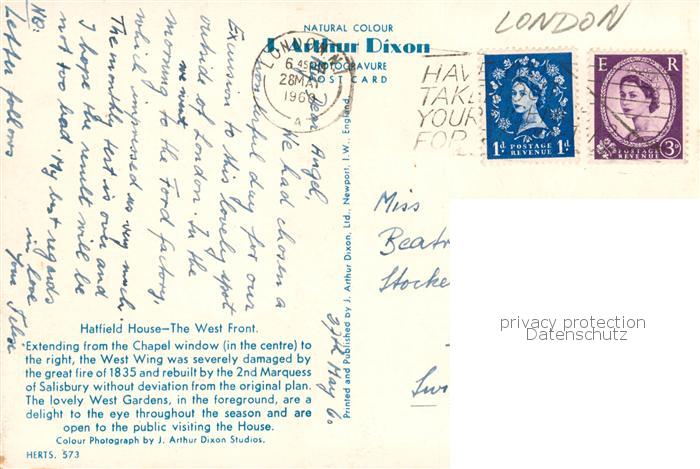 LONDON
NATURAL COLOUR
J. Arthur Dixon
PHOTOGRAVURE
POST CARD
LONDON
6.45
28 MAY
1960
A
HAVE
TAKE
YOUR
FOR
1D POSTAGE REVENUE 1D
E R
POSTAGE REVENUE 3D
27th May 60.
Dear Angel,
We had chosen a
wonderful day for our
Excursion to this lovely spot
outside of London. In the
morning we went to the Ford factory,
which impressed us very much.
The monthly test is over and
I hope the result will be
not too bad. My best regards
in love
your
NB:
Letter follows
Miss
Beatr
Stocke
Swi
Printed and Published by J. Arthur Dixon, Ltd., Newport, I.W., England.
Hatfield House—The West Front.
Extending from the Chapel window (in the centre) to
the right, the West Wing was severely damaged by
the great fire of 1835 and rebuilt by the 2nd Marquess
of Salisbury without deviation from the original plan.
The lovely West Gardens, in the foreground, are a
delight to the eye throughout the season and are
open to the public visiting the House.
Colour Photograph by J. Arthur Dixon Studios.
HERTS. 573
privacy protection
Datenschutz